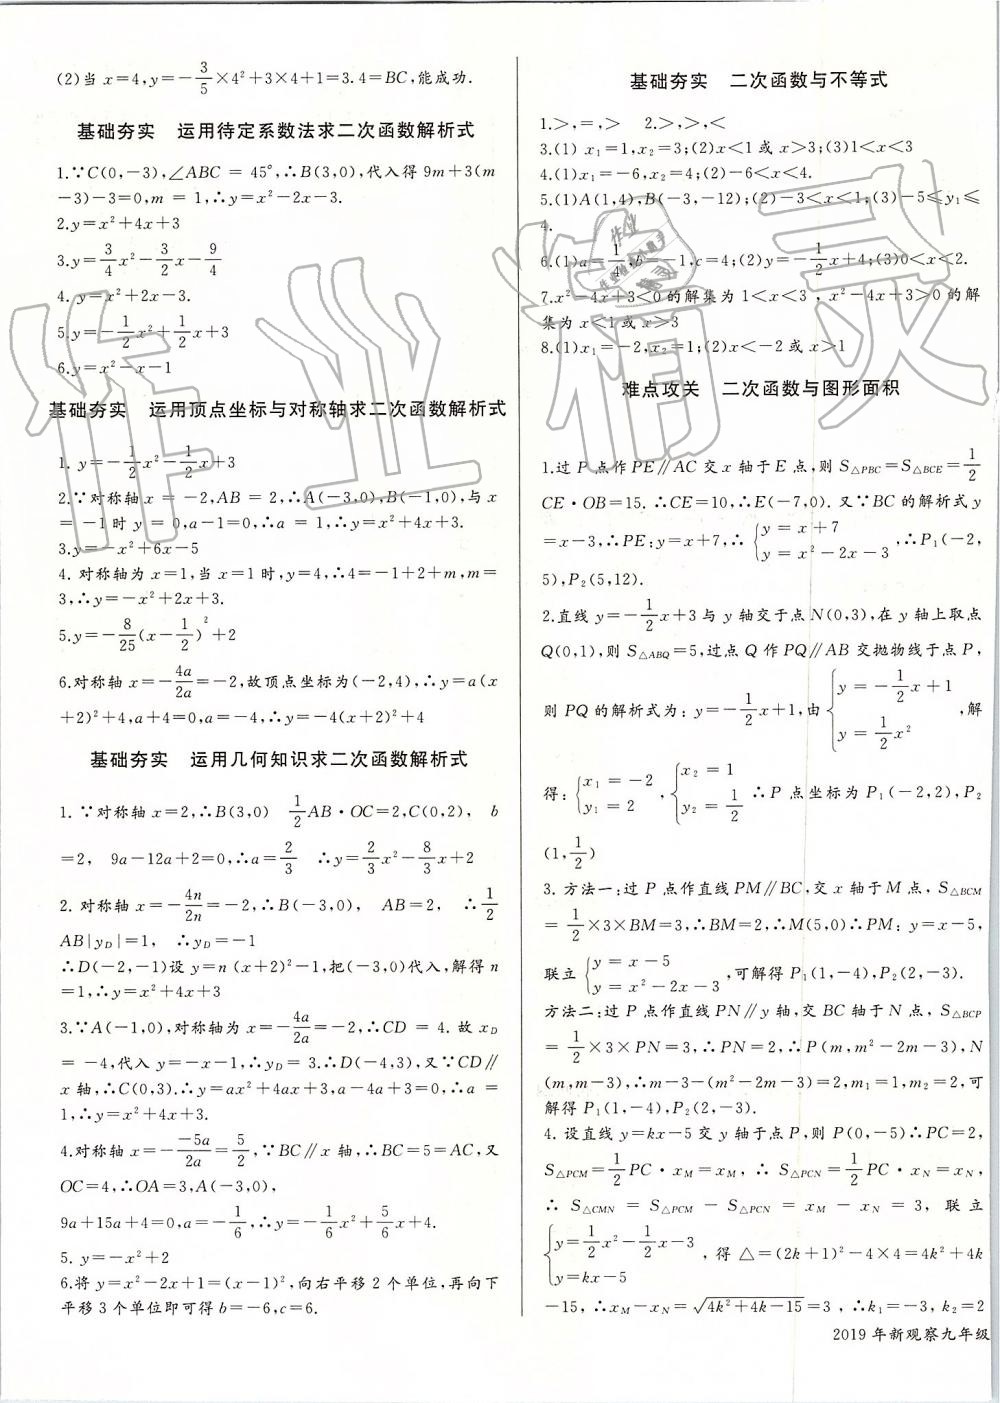 (2)当 x=4,y=-3/5×4²+3×4+1=3.4=BC,能成功.
基础夯实 运用待定系数法求二次函数解析式
1.∵C(0,-3),∠ABC = 45°,∴B(3,0),代入得 9m+3(m
-3)-3=0,m = 1,∴y=x²-2x-3.
2.y=x²+4x+3
3.y=3/4x²-3/2x-9/4
4.y=x²+2x-3.
5.y=-1/2x²+1/2x+3
6.y=x²-x-1
基础夯实 运用顶点坐标与对称轴求二次函数解析式
1. y=-1/2x²-1/2x+3
2.∵对称轴 x = -2,AB = 2,∴A(-3,0),B(-1,0),与 x
= -1时 y = 0,a-1=0,∴a = 1,∴y=x²+4x+3.
3.y=-x²+6x-5
4. 对称轴为 x=1,当 x=1 时,y=4,∴4=-1+2+m,m=
3,∴y=-x²+2x+3.
5.y=-8/25(x-1/2)²+2
6.对称轴 x=-4a/2a=-2,故顶点坐标为(-2,4),∴y=a(x
+2)²+4,a+4=0,a=-4,∴y=-4(x+2)²+4
基础夯实 运用几何知识求二次函数解析式
1. ∵对称轴 x=2,∴B(3,0) 1/2AB·OC=2,C(0,2), b
=2, 9a-12a+2=0,∴a=2/3 ∴y=2/3x²-8/3x+2
2. 对称轴 x=-4n/2n=-2,∴B(-3,0), AB=2, ∴1/2
AB|y_D|=1, ∴y_D=-1
∴D(-2,-1)设 y=n (x+2)²-1,把(-3,0)代入,解得 n
=1,∴y=x²+4x+3
3.∵A(-1,0),对称轴为 x=-4a/2a=-2,∴CD = 4. 故 x_D
= -4,代入 y=-x-1,∴y_D = 3.∴D(-4,3),又∵CD∥
x 轴,∴C(0,3).∴y=ax²+4ax+3,a-4a+3=0,∴a =
1,∴y=x²+4x+3.
4.对称轴 x=--5a/2a=5/2,∵BC∥x 轴,∴BC=5=AC,又
OC=4,∴OA=3,A(-3,0),
9a+15a+4=0,a=-1/6,∴y=-1/6x²+5/6x+4.
5. y=-x²+2
6.将 y=x²-2x+1=(x-1)²,向右平移 2 个单位,再向下
平移 3 个单位即可得 b=-6,c=6.
基础夯实 二次函数与不等式
1.>,=,> 2.>,>,<
3.(1) x₁=1,x₂=3;(2)x<1 或 x>3;(3)1<x<3
4.(1)x₁=-6,x₂=4;(2)-6<x<4.
5.(1)A(1,4),B(-3,-12);(2)-3<x<1;(3)-5≤y₁≤
4.
6.(1)a=1/4,b=-1,c=4;(2)y=-1/2x+4;(3)0<x<2.
7.x²-4x+3<0 的解集为 1<x<3 , x²-4x+3>0 的解
集为 x<1 或 x>3
8.(1)x₁=-2,x₂=1;(2)x<-2 或 x>1
难点攻关 二次函数与图形面积
1.过 P 点作 PE∥AC 交 x 轴于 E 点,则 S△PBC=S△BCE=1/2
CE·OB=15.∴CE=10,∴E(-7,0). 又∵BC 的解析式 y
=x-3,∴PE:y=x+7,∴ {y = x+7 y = x²-2x-3 ,∴P₁(-2,
5),P₂(5,12).
2.直线 y=-1/2x+3 与 y 轴交于点 N(0,3),在 y 轴上取点
Q(0,1),则 S△ABQ=5,过点 Q 作 PQ∥AB 交抛物线于点 P,
则 PQ 的解析式为: y=-1/2x+1,由{y = -1/2x+1 y = 1/2x² ,解
得:{x₁ = -2 y₁ = 2 ,{x₂ = 1 y₂ = 1/2 ∴P 点坐标为 P₁(-2,2),P₂
(1,1/2)
3. 方法一:过 P 点作直线 PM∥BC,交 x 轴于 M 点, S△BCM
= 1/2×3×BM=3,∴BM=2,∴M(5,0)∴PM: y=x-5,
联立{y = x-5 y = x²-2x-3 ,可解得 P₁(1,-4),P₂(2,-3).
方法二:过 P 点作直线 PN∥y 轴,交 BC 轴于 N 点, S△BCP
= 1/2×3×PN=3,∴PN=2,∴P(m,m²-2m-3),N
(m,m-3),∴m-3-(m²-2m-3)=2,m₁=1,m₂=2,可
解得 P₁(1,-4),P₂(2,-3).
4. 设直线 y=kx-5 交 y 轴于点 P,则 P(0,-5)∴PC=2,
S△PCM=1/2PC·x_M=x_M, ∴ S△PCN=1/2PC·x_N=x_N,
∴ S△CMN = S△PCM - S△PCN = x_M - x_N = 3, 联立
{y=1/2x²-1/2x-3 y=kx-5 , 得 △=(2k+1)²-4×4=4k²+4k
-15,∴x_M-x_N=√4k²+4k-15=3 ,∴k₁=-3, k₂=2
2019 年新观察九年级
作业精灵